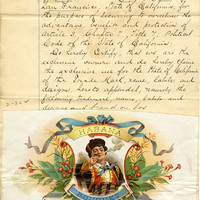 San Francisco, State of California, for
the purpose of securing to ourselves the
advantages, benefits and protection of
Article 3, Chapter 7, Title 7, Political
Code of the State of California
Do hereby Certify, that we are the
exclusive owners and do hereby claim
the exclusive use for the State of California
of the Trade Mark, name, labels and
designs hereto appended, namely the
following trademark, names, labels and
designs and brand on box
HABANA